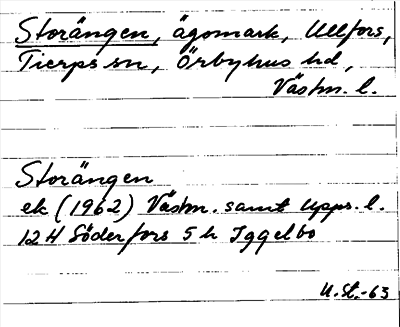 Storängen, ägomark, Ullfors,
Tierps sn, Örbyhus hd,
Västm. l.
Storängen
ek (1962) Västm. samt Upps. l.
12 H Söderfors 5 h Iggelbo
U. St.-63